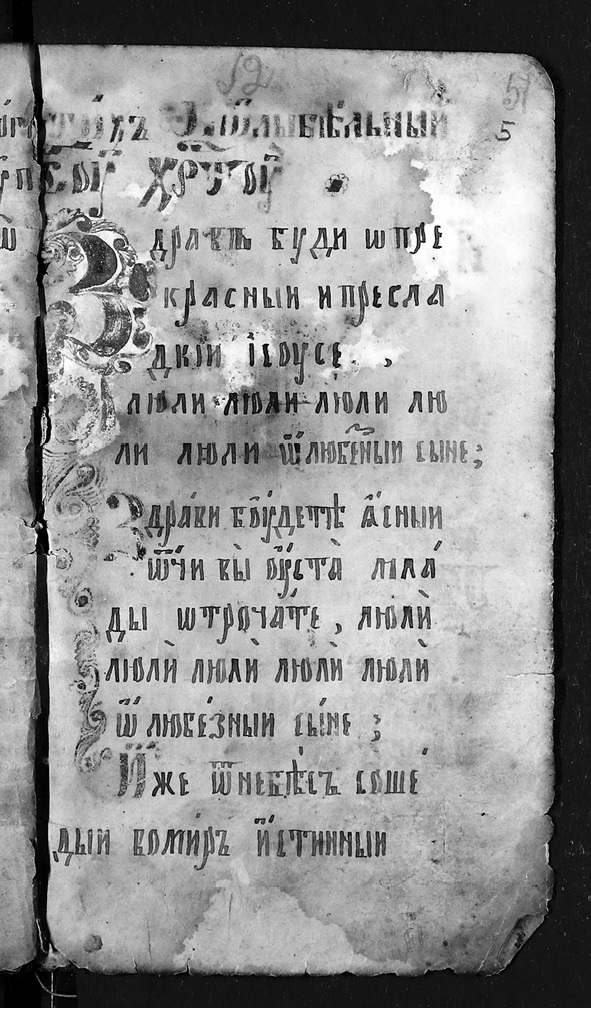 52 51
5
стихъ
хрⷭ҇тоу
Здравъ буди ѡ пре
красныи и пресла
дкїи їсоусе ,
люли люли люли лю
ли люли ѿ любезныи сыне;
Здрави боудетѣ ꙗсныи
ѿчи вы оуста мла
ды ѡтроча́те, люлѝ
люлѝ люлѝ люлѝ люлѝ
ѿ любе́зныи сы́не ;
И́же ѿ небе́съ соше́
дыи вомиръ и҆́стинныи